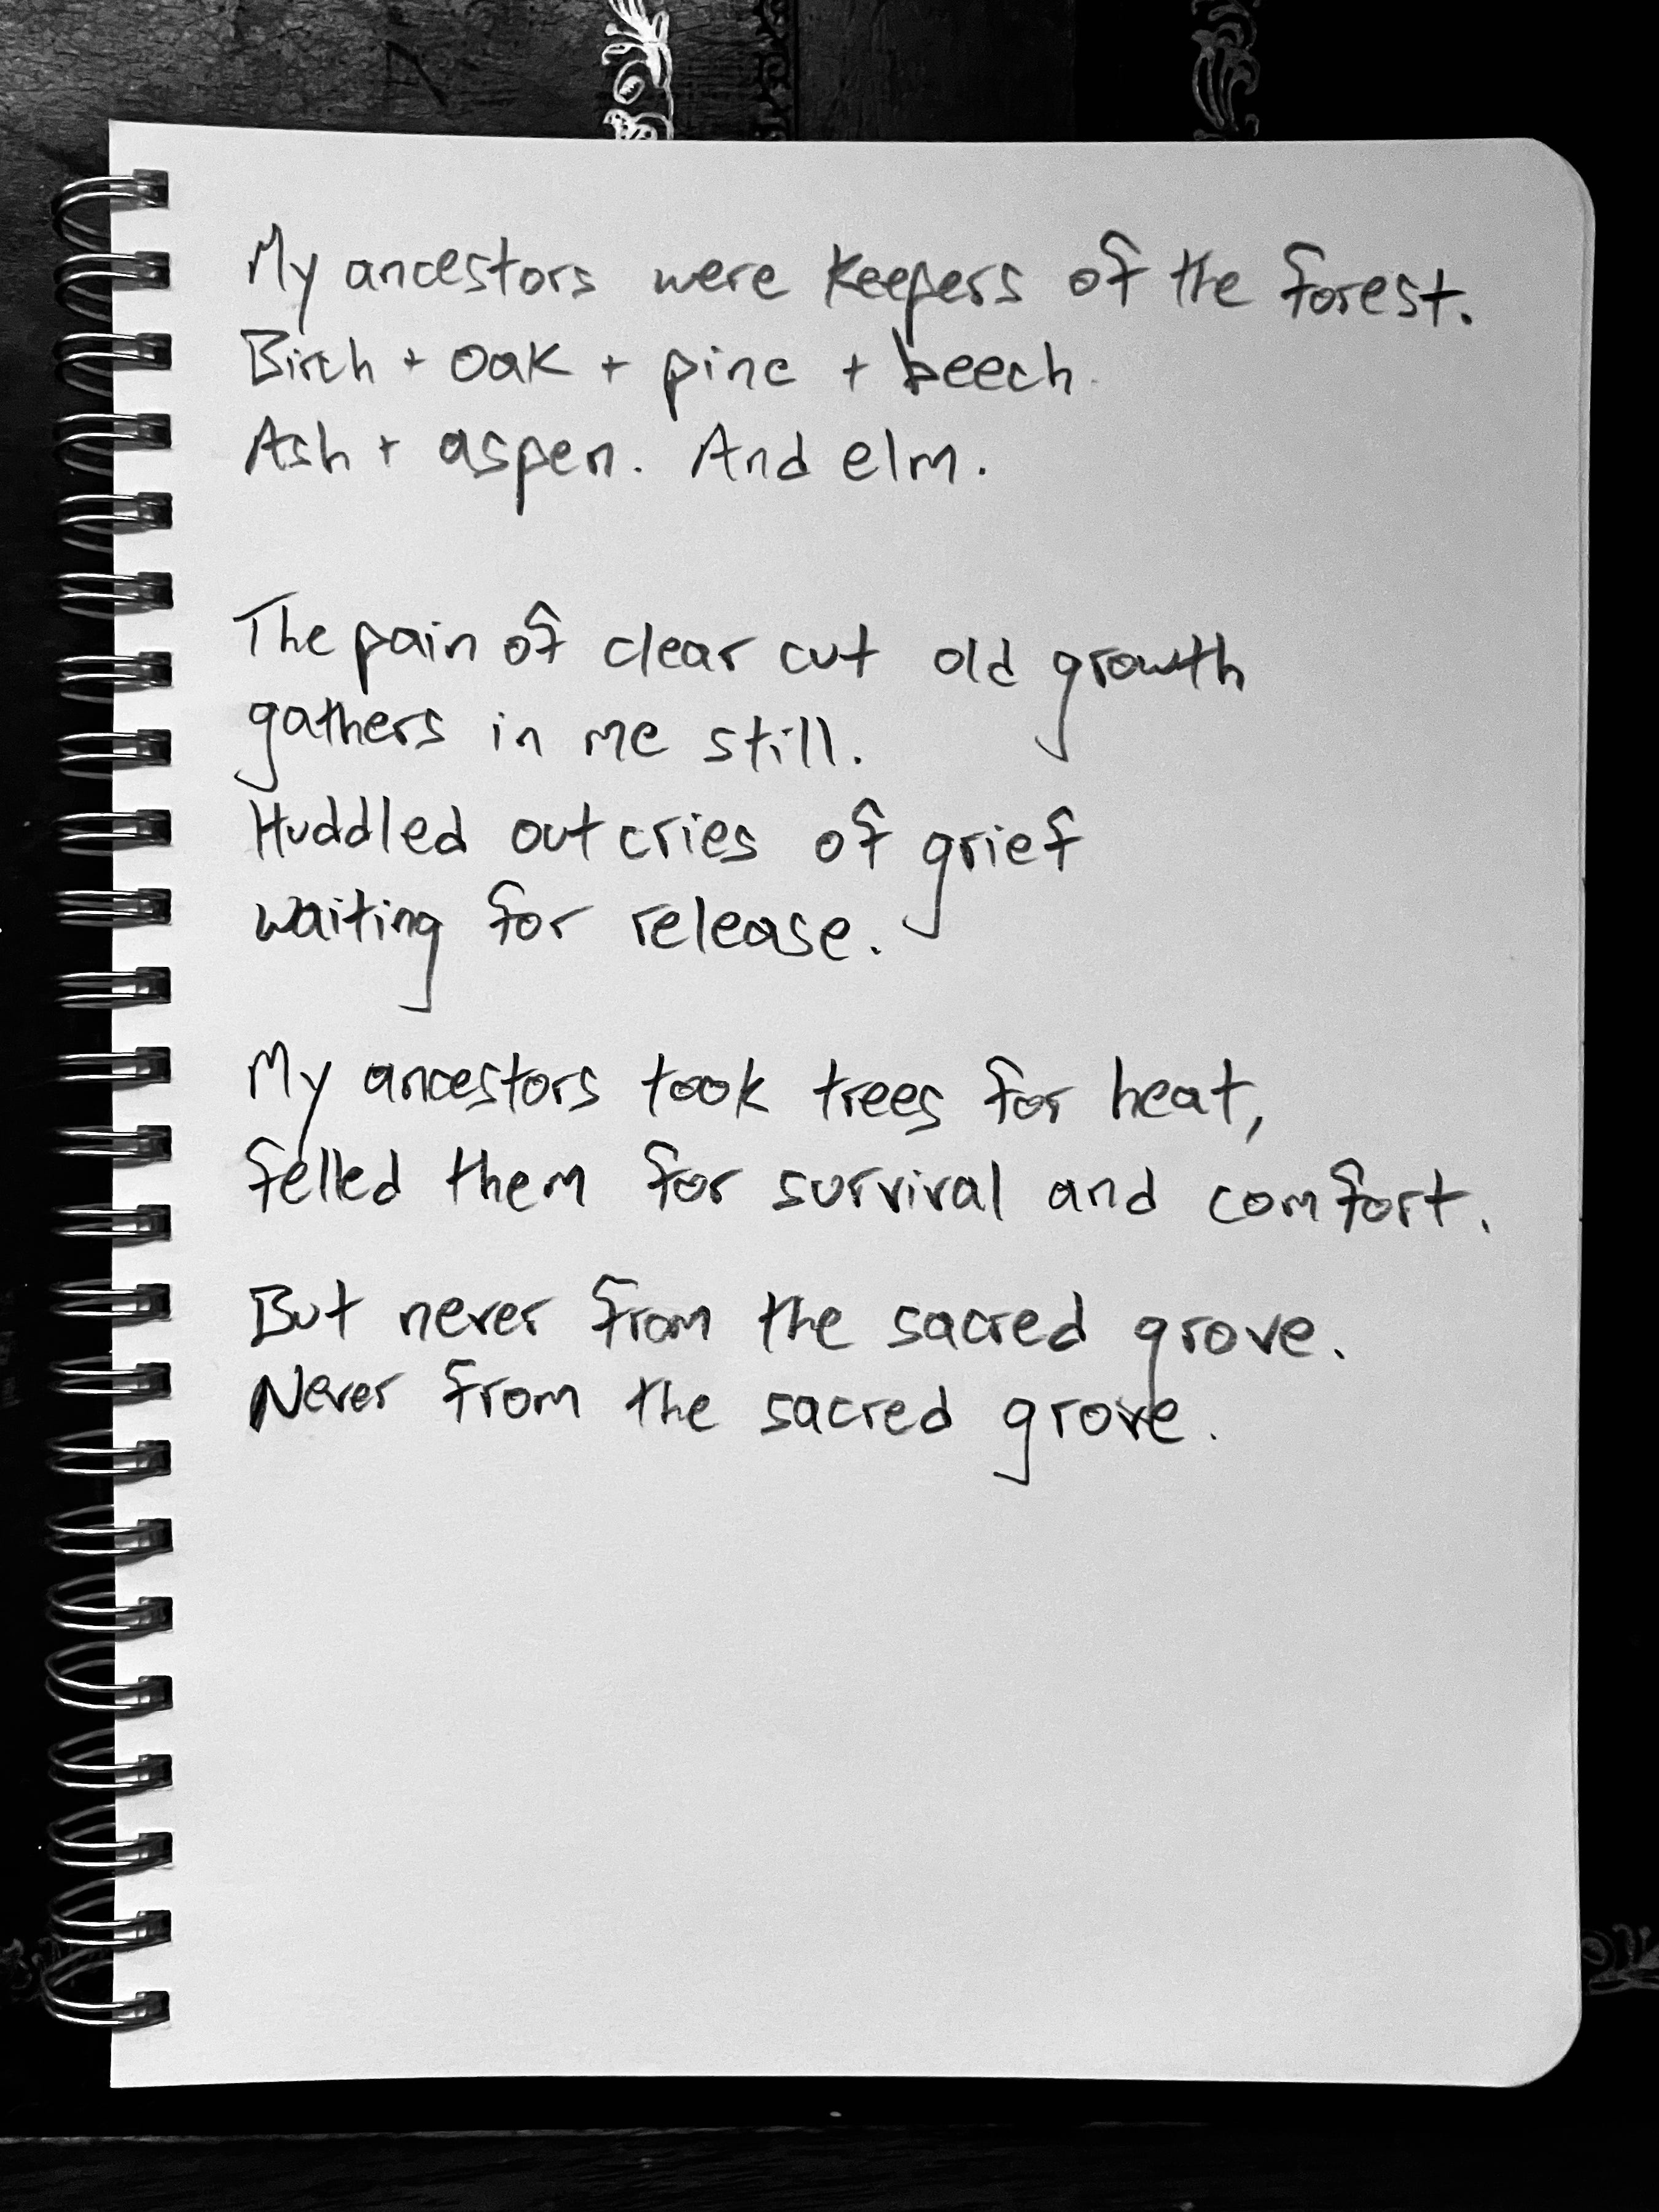 My ancestors were keepers of the forest.
Birch + oak + pine + beech.
Ash + aspen. And elm.
The pain of clear cut old growth
gathers in me still.
Huddled outcries of grief
waiting for release.
My ancestors took trees for heat,
felled them for survival and comfort.
But never from the sacred grove.
Never from the sacred grove.